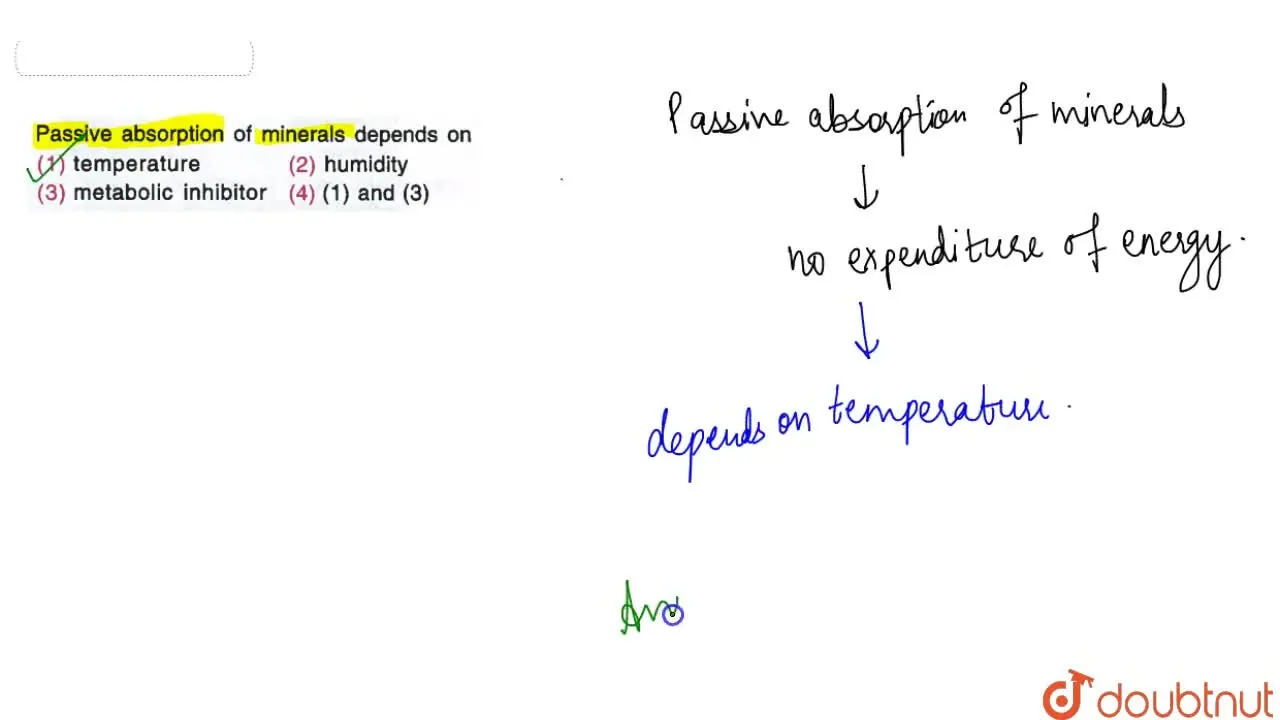 Passive absorption of minerals depends on
(1) temperature (2) humidity
(3) metabolic inhibitor (4) (1) and (3)
Passive absorption of minerals
↓
no expenditure of energy.
↓
depends on temperature.
Ans
doubtnut